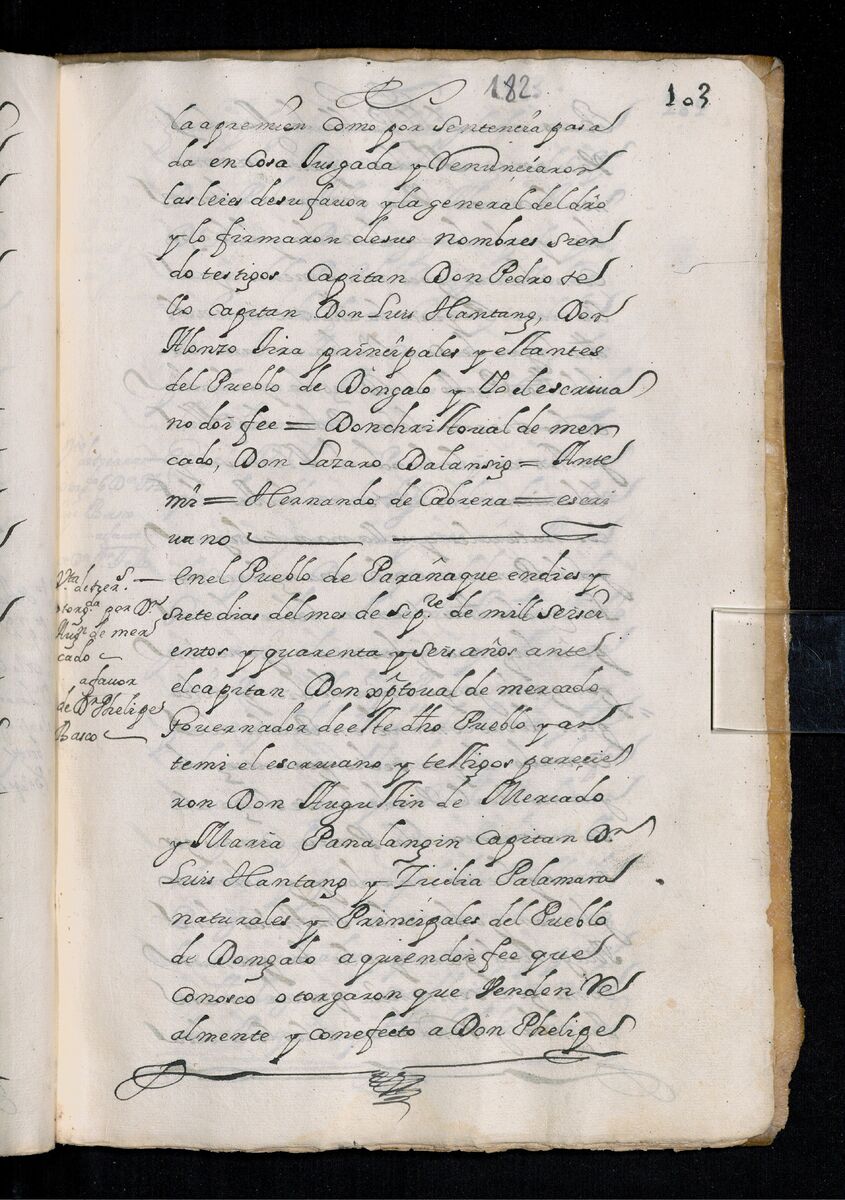 182
103
la apremien como por sentencia pasa
da en Cosa Jusgada y Renunciaron
las leies desu fauor y la general del dro
y lo firmaron desus nombres sien
do testigos Capitan Don Pedro te
llo capitan Don Luis Hantang, Don
Alonzo Jira principales y estantes
del Pueblo de Dongalo y Yo el escriua
no doi fee = Don christoual de mer
cado, Don Lazaro Dalansig = Ante
mi = Hernando de Cabrera = escri
uano
Vta de tier.s
otorgda por Dn
Augn de mer
cado
afauor
de Dn Phelipe
Basco
En el Pueblo de Parañaque en dies y
siete dias del mes de sepre de mil seisci
entos y quarenta y seis años ante
el capitan Don xptoual de mercado
Gouernador de este dho Pueblo y an
te mi el escriuano y testigos parecie
ron Don Augustin de Mercado
y Maria Panalangin Capitan Dn
Luis Hantang y Zicilia Palamara
naturales y Principales del Pueblo
de Dongalo a quien doi fee que
conosco otorgaron que Venden Re
almente y con efecto a Don Phelipe